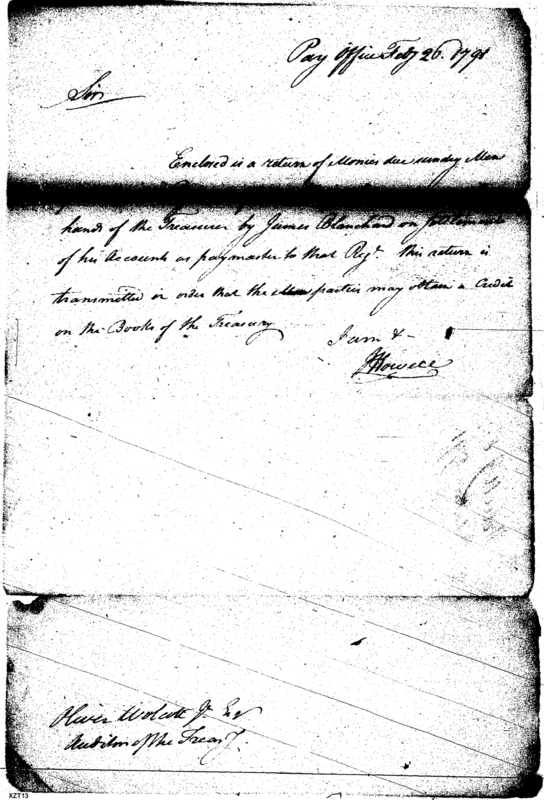 Pay Office Feby 26. 1791
Sir
Enclosed is a return of Monies due sundry Men
hands of the Treasurer by James Blanchard on settlement
of his Accounts as paymaster to that Regt. this return is
transmitted in order that the Men parties may obtain a Credit
on the Books of the Treasury
I am &
J Howell
Oliver Wolcott Jr. Esqr
Auditor of the Treasy.
XZT13